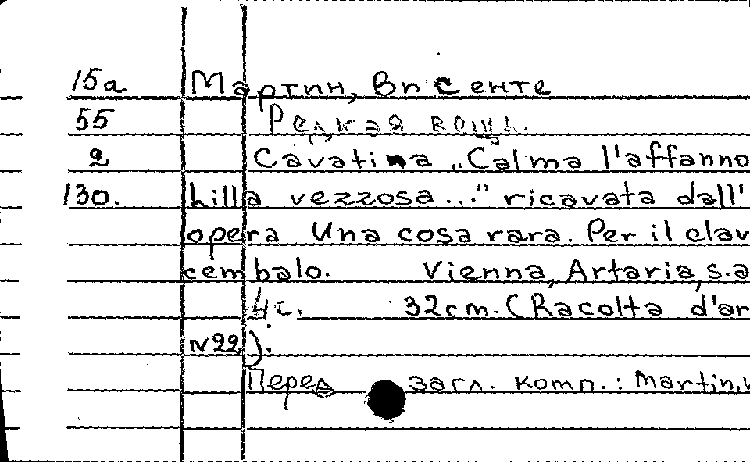 15а Мартин, Висенте
55 Редкая вещь.
2 Cavatina „Calma l'affanno
130. Lilla vezzosa..." ricavata dall'
opera Una cosa rara. Per il clav
cembalo. Vienna, Artaria, s.a
4 с. 32 cm. (Racolta d'ar
N22).
Перед загл. комп.: Martin, V